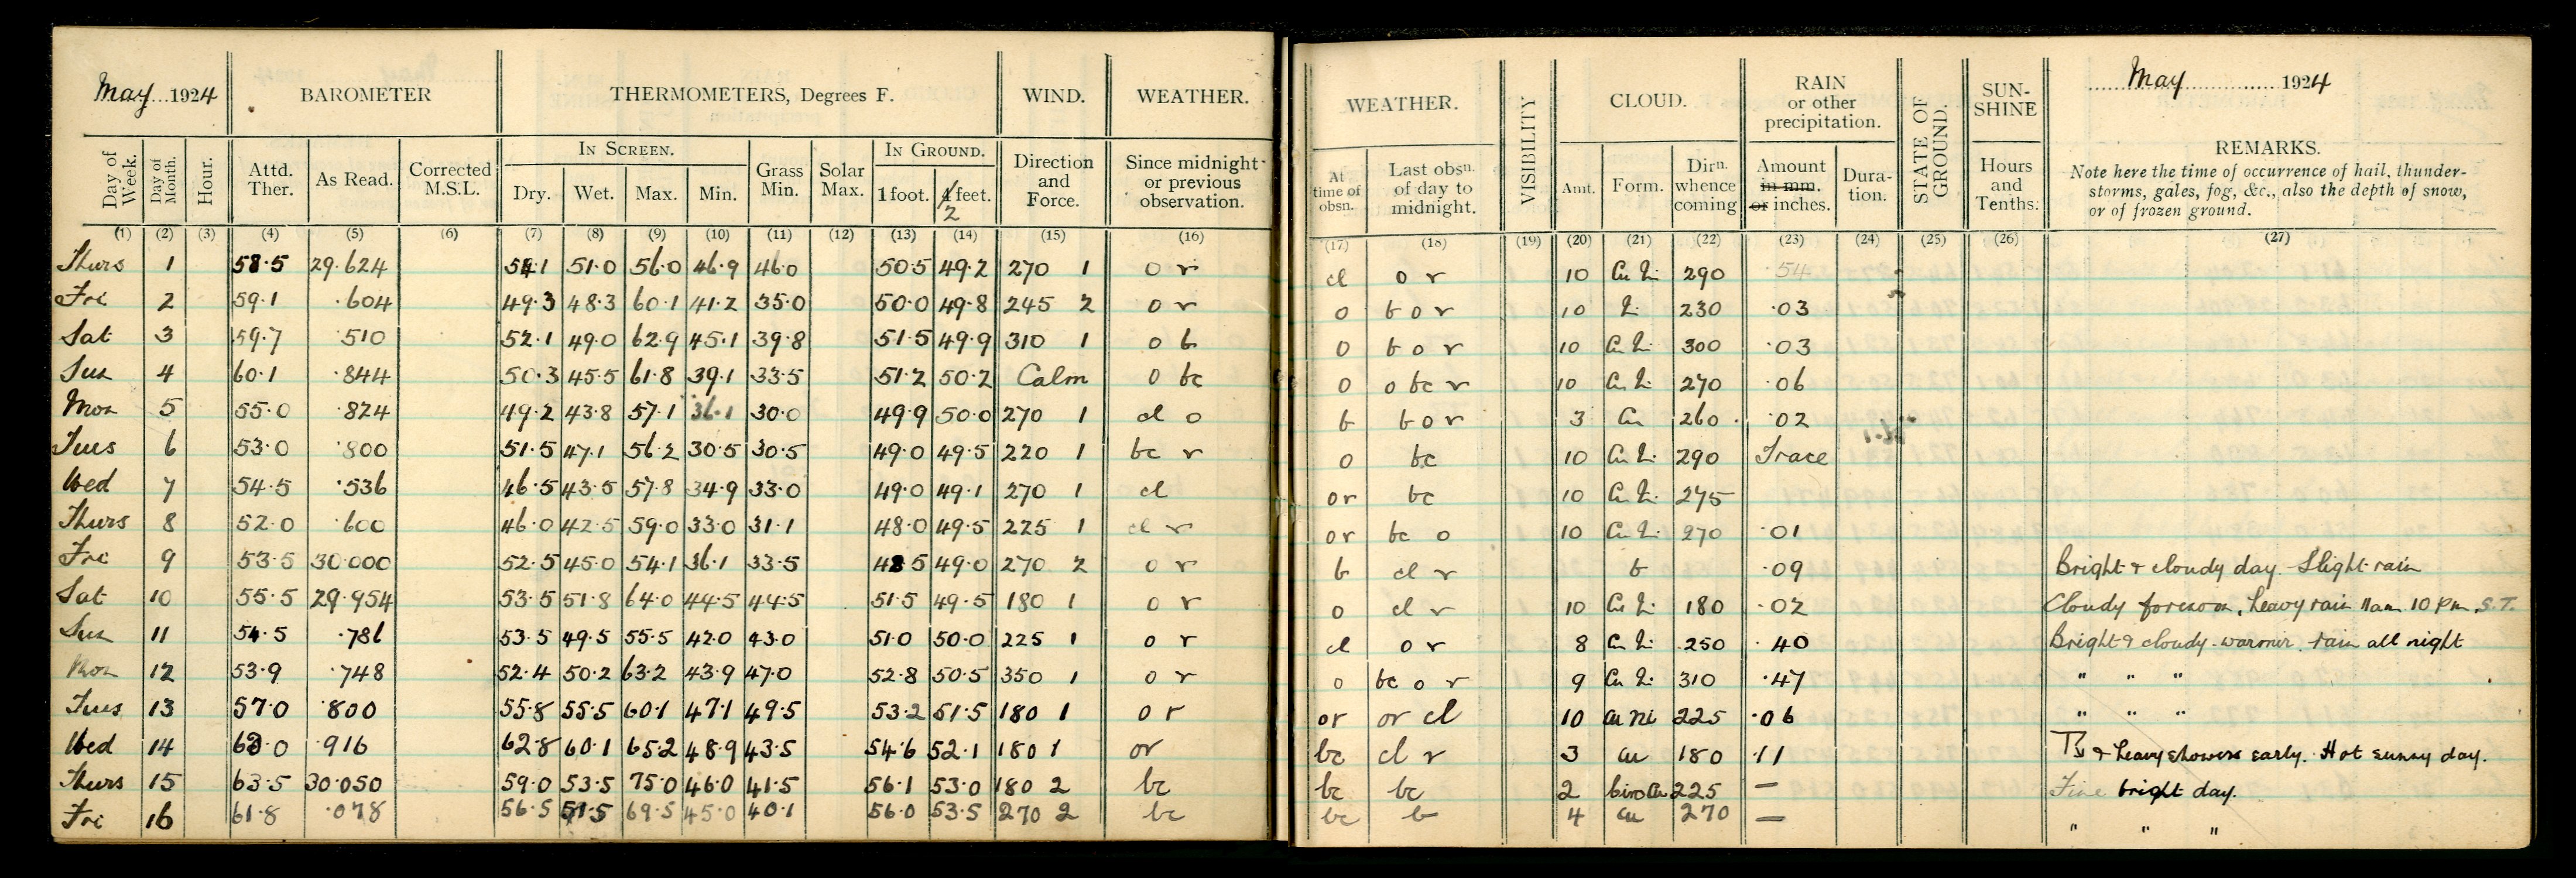 May 1924 BAROMETER THERMOMETERS, Degrees F. WIND. WEATHER.
Day of Week. Day of Month. Hour. Attd. Ther. As Read. Corrected M.S.L. IN SCREEN. Dry. Wet. Max. Min. Grass Min. Solar Max. IN GROUND. 1 foot. 4 feet. 2 Direction and Force. Since midnight or previous observation.
(1) (2) (3) (4) (5) (6) (7) (8) (9) (10) (11) (12) (13) (14) (15) (16)
Thurs 1 58.5 29.624 54.1 51.0 56.0 46.9 46.0 50.5 49.2 270 1 o r
Fri 2 59.1 .604 49.3 48.3 60.1 41.2 35.0 50.0 49.8 245 2 o r
Sat 3 59.7 510 52.1 49.0 62.9 45.1 39.8 51.5 49.9 310 1 o b
Sun 4 60.1 .844 50.3 45.5 61.8 39.1 33.5 51.2 50.2 Calm o bc
Mon 5 55.0 .824 49.2 43.8 57.1 36.1 30.0 49.9 50.0 270 1 cl o
Tues 6 53.0 .800 51.5 47.1 56.2 30.5 30.5 49.0 49.5 220 1 bc r
Wed 7 54.5 .536 46.5 43.5 57.8 34.9 33.0 49.0 49.1 270 1 cl
Thurs 8 52.0 .600 46.0 42.5 59.0 33.0 31.1 48.0 49.5 225 1 cl r
Fri 9 53.5 30.000 52.5 45.0 54.1 36.1 33.5 48.5 49.0 270 2 o r
Sat 10 55.5 29.954 53.5 51.8 64.0 44.5 44.5 51.5 49.5 180 1 o r
Sun 11 54.5 .786 53.5 49.5 55.5 42.0 43.0 51.0 50.0 225 1 o r
Mon 12 53.9 .748 52.4 50.2 63.2 43.9 47.0 52.8 50.5 350 1 o r
Tues 13 57.0 .800 55.8 55.5 60.1 47.1 49.5 53.2 51.5 180 1 o r
Wed 14 .916 62.8 60.1 65.2 48.9 43.5 54.6 52.1 180 1 or
Thurs 15 63.5 30.050 59.0 53.5 75.0 46.0 41.5 56.1 53.0 180 2 bc
Fri 16 61.8 .078 56.5 51.5 69.5 45.0 40.1 56.0 53.5 270 2 bc
WEATHER. VISIBILITY CLOUD. RAIN or other precipitation. STATE OF GROUND. SUN-SHINE May 1924
At time of obsn. Last obsn. of day to midnight. Amt. Form. Dirn. whence coming Amount in mm. or inches. Duration. Hours and Tenths. REMARKS.
Note here the time of occurrence of hail, thunder-
storms, gales, fog, &c., also the depth of snow,
or of frozen ground.
(17) (18) (19) (20) (21) (22) (23) (24) (25) (26) (27)
cl o r 10 Cu Ni 290 .54
o b o r 10 Ni 230 .03
o b o r 10 Cu Ni 300 .03
o o bc r 10 Cu Ni 270 .06
b b o r 3 Cu 260 .02
o bc 10 Cu Ni 290 Trace
or bc 10 Cu Ni 275
or bc o 10 Cu Ni 270 .01
b cl r b .09 Bright & cloudy day. Slight rain
o cl r 10 Cu Ni 180 .02 Cloudy forenoon, heavy rain 11am 10 pm. S.T.
cl o r 8 Cu Ni 250 .40 Bright & cloudy. warmer. rain all night
o bc o r 9 Cu Ni 310 .47 " " "
or or cl 10 cu ni 225 .06 " " "
bc cl r 3 cu 180 .11 & heavy showers early. Hot sunny day.
bc bc 2 Cirro Cu 225 — Fine bright day.
bc b 4 cu 270 — " " "